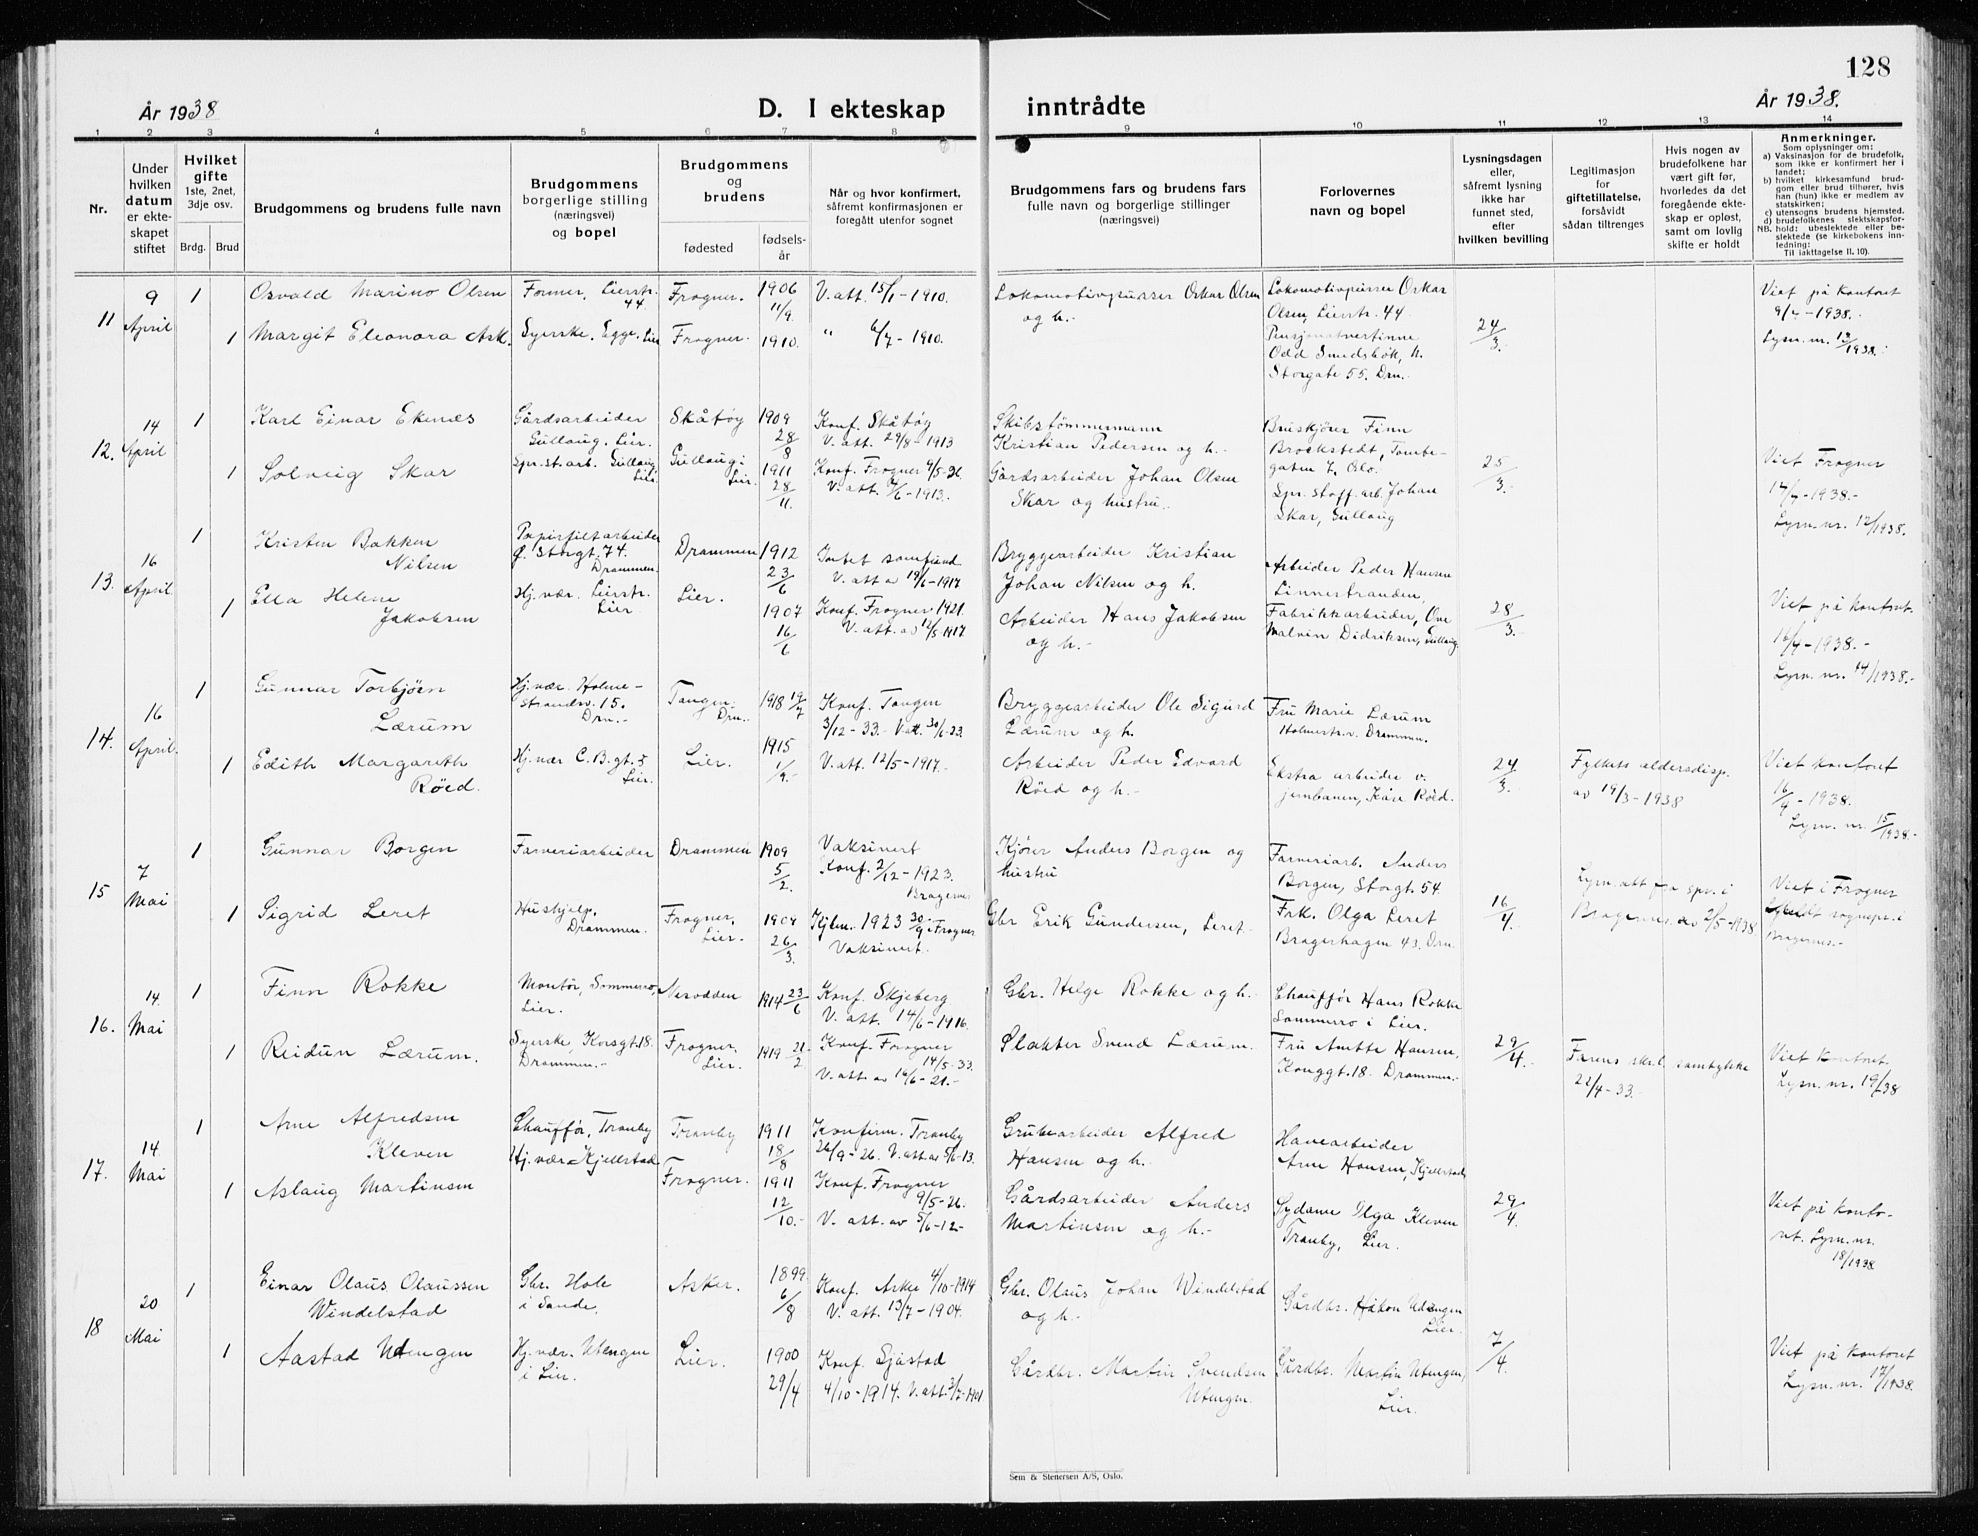 128
År 1938
D. I ekteskap inntrådte
År 1938.
1 2 3 4 5 6 7 8 9 10 11 12 13 14
Nr.
Under hvilken datum er ekteskapet stiftet
Hvilket gifte
1ste, 2net, 3dje osv.
Brdg. Brud
Brudgommens og brudens fulle navn
Brudgommens borgerlige stilling (næringsvei) og bopel
Brudgommens og brudens
fødested
fødselsår
Når og hvor konfirmert, såfremt konfirmasjonen er foregått utenfor sognet
Brudgommens fars og brudens fars fulle navn og borgerlige stillinger (næringsvei)
Forlovernes navn og bopel
Lysningsdagen eller, såfremt lysning ikke har funnet sted, efter hvilken bevilling
Legitimasjon for giftetillatelse, forsåvidt sådan tiltrenges
Hvis nogen av brudefolkene har vært gift før, hvorledes da det foregående ekteskap er opløst, samt om lovlig skifte er holdt
Anmerkninger.
Som oplysninger om:
a) Vaksinasjon for de brudefolk, som ikke er konfirmert her i landet;
b) hvilket kirkesamfund brudgom eller brud tilhører, hvis han (hun) ikke er medlem av statskirken;
c) utensogns brudens hjemsted.
d) brudefolkenes slektskapsforhold: ubeslektede eller beslektede (se kirkebokens innledning:
NB.
Til iakttagelse II. 10).
11
9 April
1
Osvald Marino Olsen
Former, Lierstr. 44.
Frogner.
1906 11/9.
V. att. 15/1-1910.
Lokomotivpusser Oskar Olsen og h.-
Lokomotivpusser Oskar Olsen, Lierstr. 44
Viet på kontoret 9/4-1938.
1
Margit Eleonora Ask.
Syerske. Egge. Lier
Frogner.
1910.
" 6/7-1910.
Pensjonatvertinne Odd Smedsbök, h. Storgate 55. Drn.
24/3.
Lysn. nr. 13/1938.
12.
14 April
1
Karl Einar Ekenes
Gårdsarbeider Gullaug. Lier.
Skåtøy
1909 28/8
Konf. Skåtøy V. att. 29/8-1913
Skibstømmermann Kristian Pedersen og h.-
Bruskjører Finn Brockstedt, Tombegaten 7, Oslo.
1
Solveig Skar
Spr.st.arb. Gullaug Lier
Gullaug i Lier.
1911 28/11.
Konf. Frogner 9/5-26. V. att. 4/6-1913.
Gårdsarbeider Johan Olsen Skar og hustru.
Spr. stoff. arb. Johan Skar, Gullaug
25/3.
Viet Frogner 14/4-1938.-
Lysn. nr. 12/1938.
13.
16 April
1
Kristen Bakken Nilsen
Papirfiltarbeider Ø. Storgt. 74. Drammen.
Drammen
1912 23/6
Intet samfund V. att av 19/6-1917
Bryggearbeider Kristian Johan Nilsen og h.
Arbeider Peder Hansen Linnestranden,
1
Ella Helene Jakobsen
Hj.vær. Lierstr. Lier
Lier.
1907 16/6
Konf. Frogner 1921. V. att. av 12/5-1917
Arbeider Hans Jakobsen og h.-
Fabrikkarbeider, Ove Malvin Didriksen, Gullaug
28/3.
Viet på kontoret. 16/4-1938.-
Lysn. nr. 14/1938.-
14.
16 April.
1
Gunnar Torbjörn Lærum
Hj.vær. Holmestrandsv. 15. Drn.-
Tangen. Drn.
1918 19/7
Konf. Tangen 3/12-33.- V. att. 30/6-23.
Bryggearbeider Ole Sigurd Lærum og h.
Fru Marie Lærum Holmestr.v. Drammen.
1
Edith Margareth Röed.
Hj.vær C.B.gt.5 Lier.
Lier.
1915 1/9.-
V. att. 12/5-1917.-
Arbeider Peder Edvard Röed og h.-
Ekstra arbeider v. jernbanen, Kåre Röed.
24/3.
Fylkets aldersdisp. av 19/3-1938
Viet kontoret 16/4-1938.
Lysn. nr. 15/1938.-
15
7 Mai
1
Gunnar Borgen
Farveriarbeider
Drammen
1909 5/2.
Vaksinert Konf. 2/12-1923. Bragernes
Kjører Anders Borgen og hustru
Farveriarb. Anders Borgen, Storgt. 54.
1
Sigrid Leret
Hushjelp. Drammen.
Frogner, Lier.
1904 26/3.
1923 30/9 i Frogner Vaksinert.
Gbr Erik Gundersen, Leret.
Frk. Olga Leret Bragerhagen 43. Drn
16/4.
Lysn. att fra spr. i Bragernes av 2/5-1938
Viet i Frogner sognepr. i Bragernes.-
16.
14. Mai
1
Finn Rokke
Montør, Sommerro, Lier.
Notodden
1914 23/6
Konf. Skjeberg. V. att. 14/6-1916.
Gbr. Helge Rokke og h.
Chauffør Hans Rokke Sommerro i Lier.
1
Reidun Lærum.
Syerske, Korsgt. 18. Drammen.-
Frogner, Lier.
1919 21/2.
Konf. Frogner 14/5-33. V. att. av 16/6-21.-
Slakter Svend Lærum.
Fru Anette Hansen, Konggt. 18. Drammen.-
29/4.
Farens skr.l. samtykke 22/4-33.
Viet kontoret.
Lysn. nr. 19/38
17.
14. Mai
1
Arne Alfredsen Kleven
Chauffør, Tranby
Tranby
1911 18/8
Konfirm. Tranby 26/9-26. V. att. av 5/6-13.
Grubearbeider Alfred Hansen og h.
Havearbeider Arne Hansen, Kjellstad
1
Aslaug Martinsen
Hj.vær Kjellstad
Frogner.
1911 12/10.-
Konf. Frogner 9/5-26. V. att. av 5/6-12-
Gårdsarbeider Anders Martinsen og h.-
Sydame Olga Kleven Tranby, Lier.
29/4.
Viet på kontoret. Lysn. nr. 18/1938
18
20 Mai
1
Einar Olaus Olaussen Windelstad
Gbr. Hole i Sande.
Asker.
1899 6/8
Konf. Asker 4/10-1914 V. att. 13/7-1904.
Gbr. Olaus Johan Windelstad og h.
Gårdbr. Håkon Utengen Lier.
1
Aastad Utengen
Hj.vær. Utengen i Lier.
Lier.
1900 29/4
Konf. Sjåstad 4/10-1914. V. att. 3/7-1901
Gårdbr. Martin Svendsen Utengen.
Gårdbr. Martin Utengen, Lier.
7/4.
Viet på kontoret
Lysn. nr. 17/1938.
Sem & Stenersen A/S, Oslo.